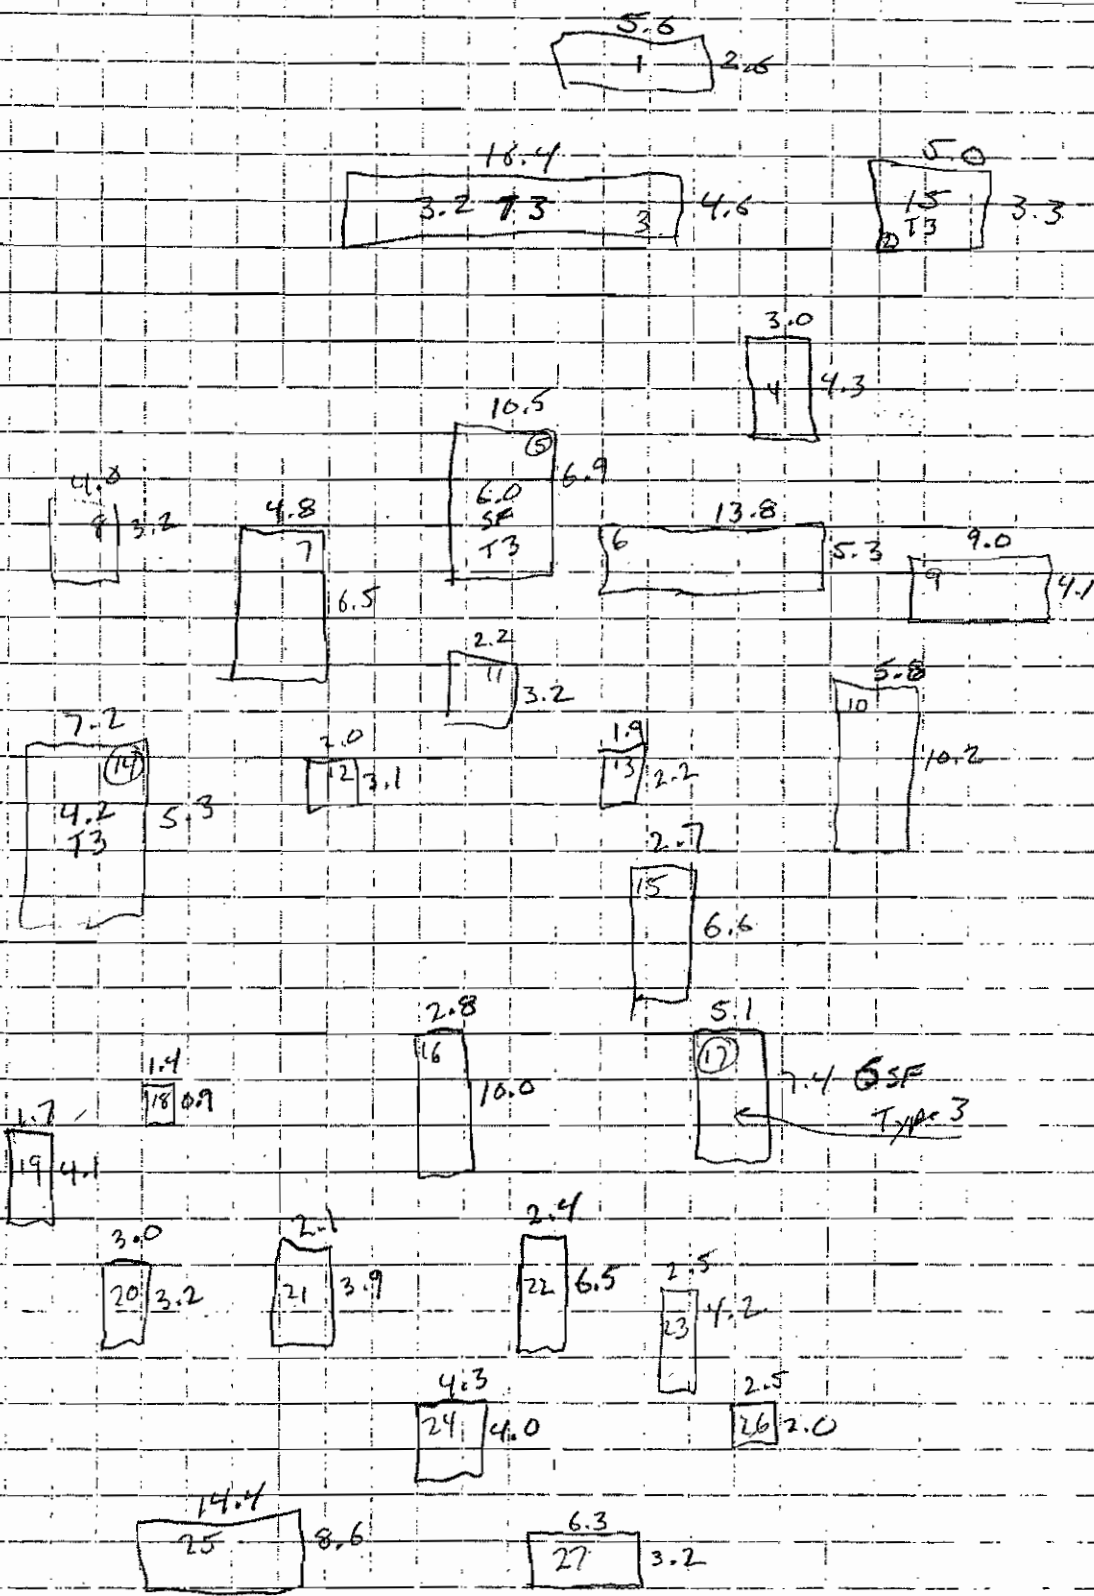 5.6
1 2.6
16.4
3.2 T3 3 4.6
5.0
15
T3
2
3.3
3.0
4 4.3
10.5
5
6.9
6.0
SF
T3
4.0
8 3.2
4.8
7
6.5
13.8
6 5.3
9.0
9 4.1
2.2
11
3.2
5.8
10
10.2
7.2
14
4.2
T3
5.3
2.0
12 3.1
1.9
13 2.2
2.7
15
6.6
2.8
16
10.0
5.1
17
7.4 6SF
Type 3
1.4
18 0.9
1.7
19 4.1
3.0
20 3.2
2.1
21 3.9
2.4
22 6.5
2.5
23 4.2
4.3
24 4.0
2.5
26 2.0
14.4
25 8.6
6.3
27 3.2